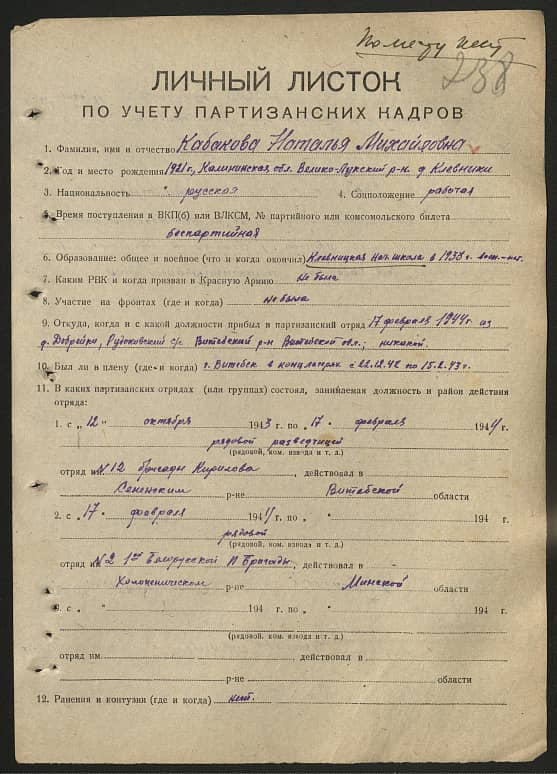 Помету нет
238
ЛИЧНЫЙ ЛИСТОК
ПО УЧЕТУ ПАРТИЗАНСКИХ КАДРОВ
1. Фамилия, имя и отчество Кабакова Наталья Михайловна
2. Год и место рождения 1921 г., Калининская обл. Велико-Лукский р-н. д. Клевники
3. Национальность русская 4. Соцположение рабочая
5. Время поступления в ВКП(б) или ВЛКСМ, № партийного или комсомольского билета
беспартийная
6. Образование: общее и военное (что и когда окончил) Клевницкая нач. школа в 1938 г.
7. Каким РВК и когда призван в Красную Армию не была
8. Участие на фронтах (где и когда) не была
9. Откуда, когда и с какой должности прибыл в партизанский отряд 17 февраля 1944 г. из
д. Добрейки, с/с Витебский р-н Витебской обл.; никакой.
10. Был ли в плену (где и когда) г. Витебск в концлагерях с 22.12.42 по 15.2.43 г.
11. В каких партизанских отрядах (или группах) состоял, занимаемая должность и район действия
отряда:
1. с „12" октября 1943 г. по „17" февраля 1944 г.
рядовой разведчицей
(рядовой, ком. взвода и т. д.)
отряд им. №12 бригады Кирилова, действовал в
Сенненским р-не Витебской области
2. с „17" февраля 1944 г. по „ " 194 г.
рядовой
(рядовой, ком. взвода и т. д.)
отряд им. №2 1ой Белорусской П Бригады, действовал в -
Холопеническом р-не Минской области
3. с „ " 194 г. по „ " 194 г.
(рядовой, ком. взвода и т. д.)
отряд им. действовал в
р-не области
12. Ранения и контузии (где и когда) нет.